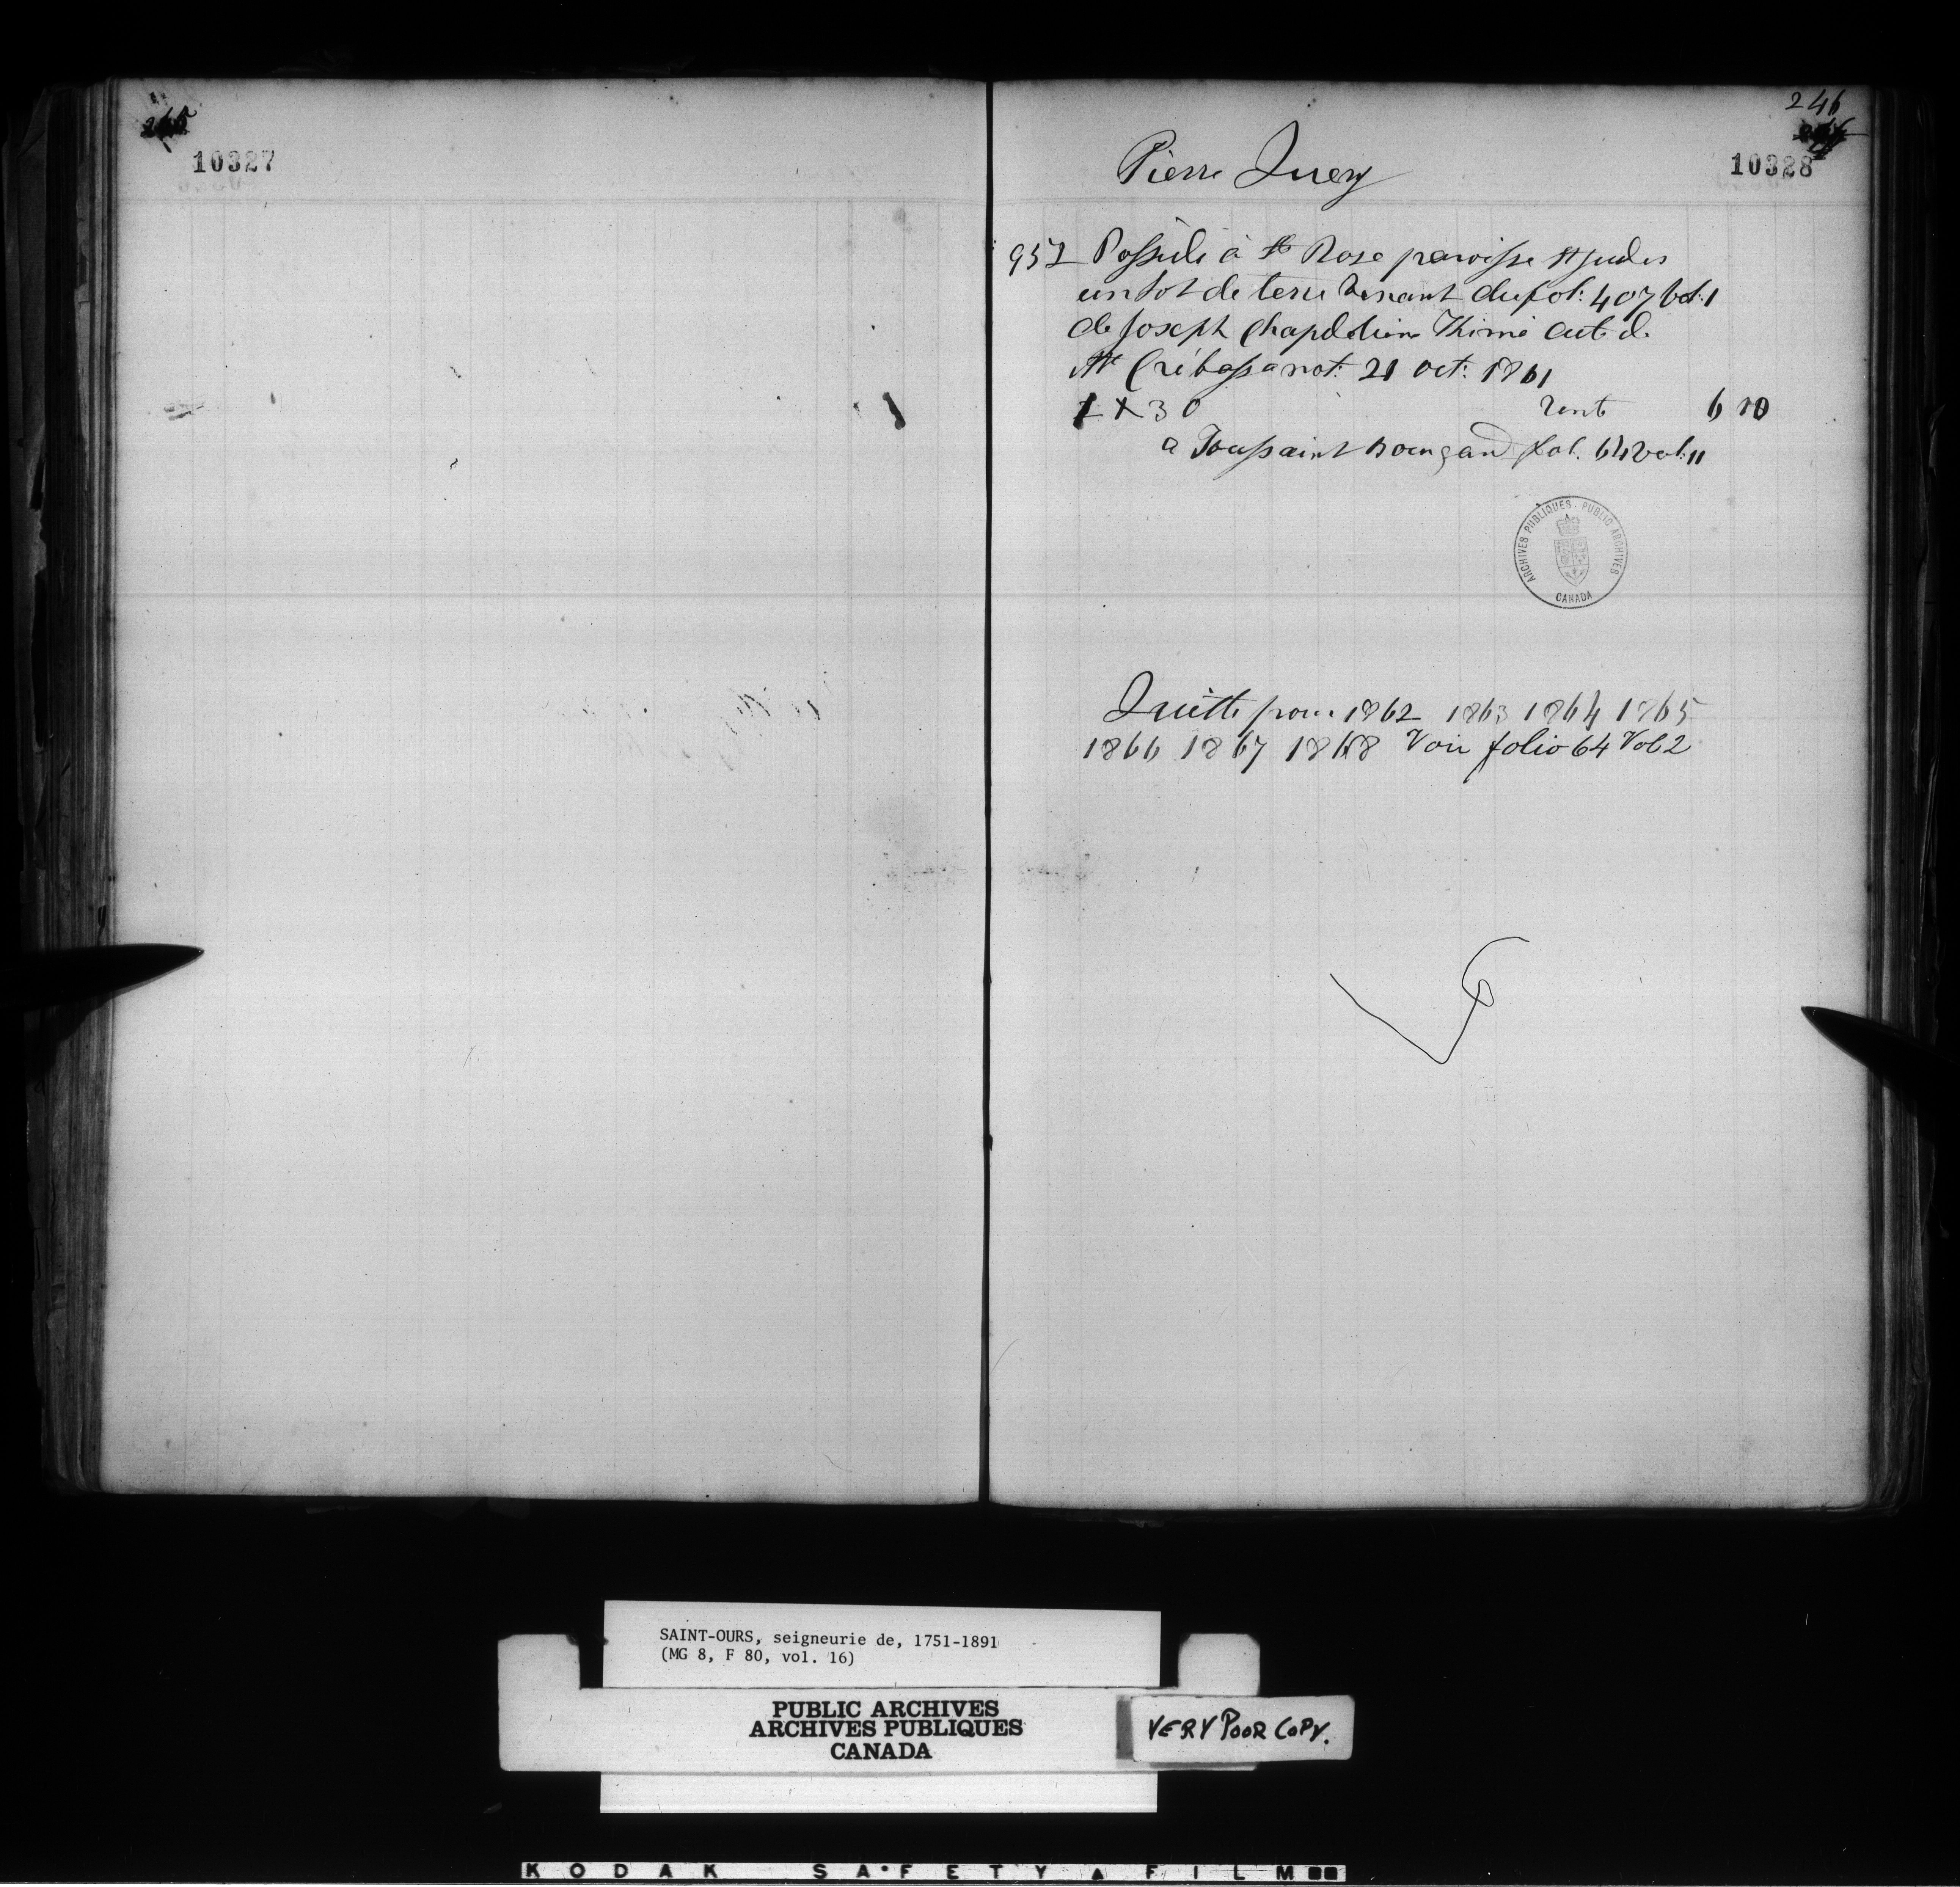 10327
246
10328
Pierre Query
952 Possède à Ste Rose paroisse St Judes
un lot de terre venant du fol: 407 vol: 1
de Joseph Chapdelaine Thimé acte de
Mtre Crébassa not: 21 Oct: 1861
1 x 30 rente 6 10
a Toussaint fol. 64 vol: 11
ARCHIVES PUBLIQUES · PUBLIC ARCHIVES
CANADA
Quitte pour 1862 1863 1864 1865
1866 1867 1868 Voir folio 64 Vol 2
SAINT-OURS, seigneurie de, 1751-1891
(MG 8, F 80, vol. 16)
PUBLIC ARCHIVES
ARCHIVES PUBLIQUES
CANADA
VERY POOR COPY.
KODAK SAFETY FILM